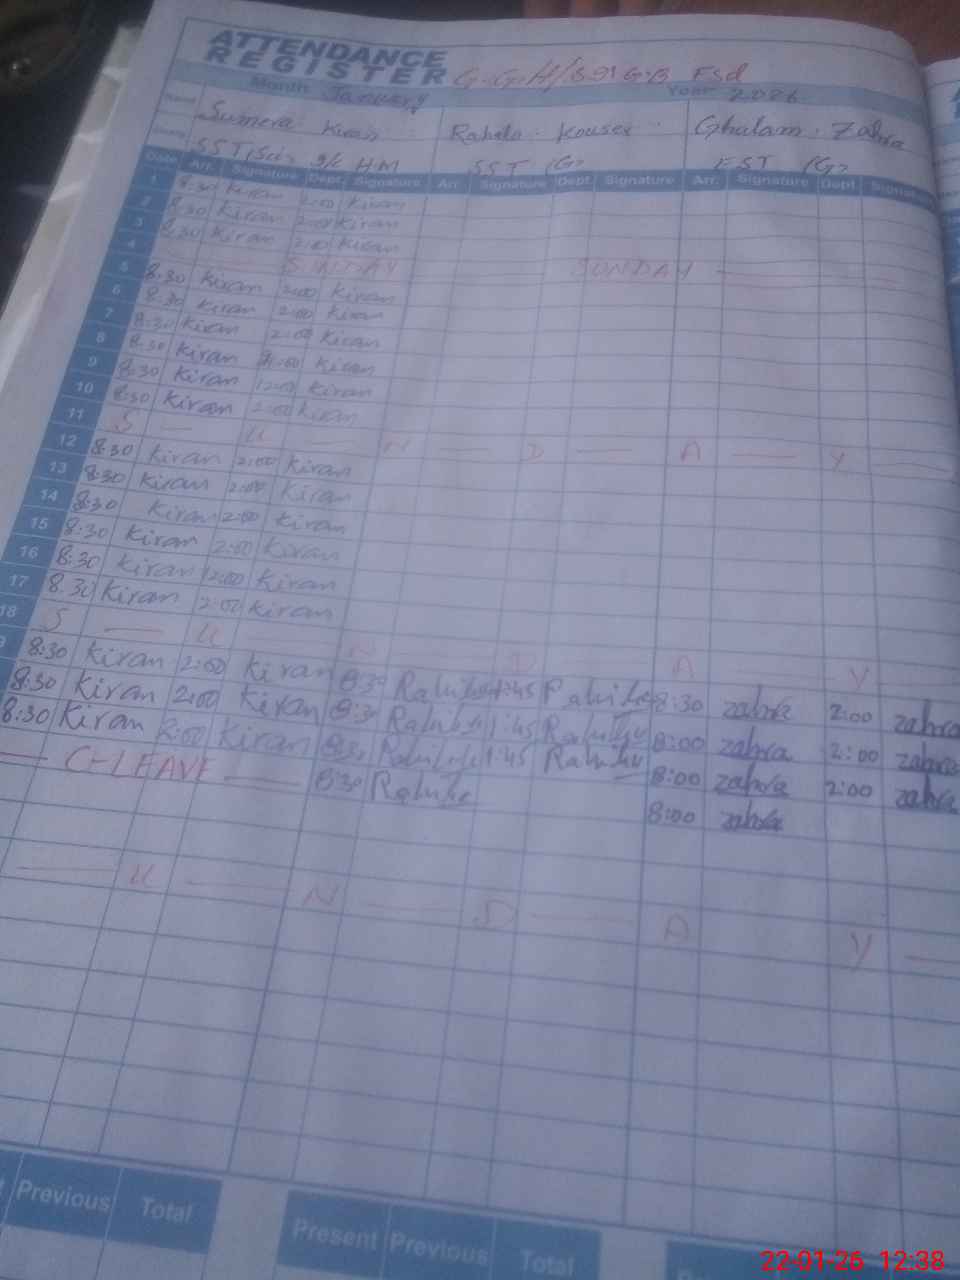 ATTENDANCE
REGISTER G.G.H/S 91 G.B Fsd
Month January Year 2026
Name Sumera Kiran Rahela Kouser Ghulam Zahra
SST(Sci) I/C HM SST (G) EST (G)
Date Arr. Signature Dept. Signature Arr. Signature Dept. Signature Arr. Signature Dept. Signature
1 8:30 Kiran 2:00 Kiran
2 8:30 Kiran 2:00 Kiran
3 8:30 Kiran 2:00 Kiran
4 SUNDAY SUNDAY
5 8:30 Kiran 2:00 Kiran
6 8:30 Kiran 2:00 Kiran
7 8:30 Kiran 2:00 Kiran
8 8:30 Kiran 2:00 Kiran
9 8:30 Kiran 12:00 Kiran
10 8:30 Kiran 2:00 Kiran
11 S — U — N — D — A — Y
12 8:30 Kiran 2:00 Kiran
13 8:30 Kiran 2:00 Kiran
14 8:30 Kiran 2:00 Kiran
15 8:30 Kiran 2:00 Kiran
16 8:30 Kiran 12:00 Kiran
17 8:30 Kiran 2:00 Kiran
18 S — U — N — D — A — Y
8:30 Kiran 2:00 Kiran 8:30 1:45 8:30 zahra 2:00 zahra
8:30 Kiran 2:00 Kiran 8:30 1:45 8:00 zahra 2:00 zahra
8:30 Kiran 2:00 Kiran 8:30 1:45 8:00 zahra 2:00 zahra
— C-LEAVE — 8:30 8:00 zahra
— U — N — D — A Y —
Previous Total Present Previous Total
22-01-26 12:38